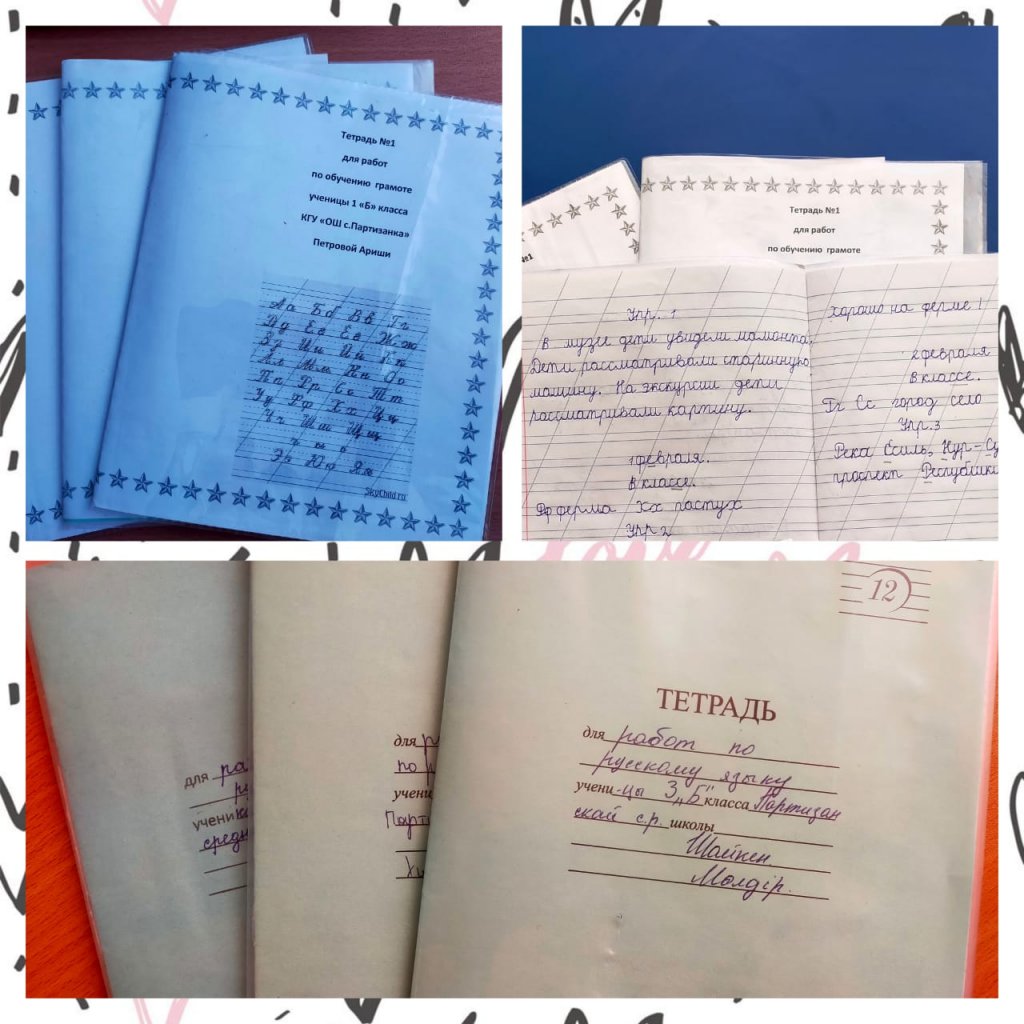 Тетрадь №1
для работ
по обучению грамоте
ученицы 1 «Б» класса
КГУ «ОШ с.Партизанка»
Петровой Ариши
Аа Бб Вв Гг
Дд Ее Ёё Жж
Зз Ии Йй Кк
Лл Мм Нн Оо
Пп Рр Сс Тт
Уу Фф Хх Цц
Чч Шш Щщ
ъ ы ь
Ээ Юю Яя
SkyChild.ru
№1
Тетрадь №1
для работ
по обучению грамоте
Упр. 1
В музее дети увидели мамонта.
Дети рассматривали старинную
машину. На экскурсии дети
рассматривали картину.
1 февраля.
В классе.
Фф ферма Хх пастух
Упр 2
хорошо на ферме!
2 февраля
В классе.
Гг Сс город село
Упр. 3
Река Есиль, Нур-Су
проспект Республики
для ра
ру
учени
средн
для р
по р
учени
Парти
12
ТЕТРАДЬ
для работ по
русскому языку
учени-цы 3 „Б" класса Партизан
ской с.р. школы
Шайкен
Молдір.